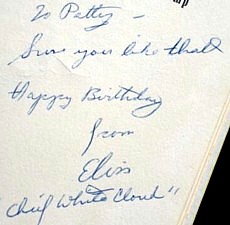 To Patty –
Sure you like that
Happy Birthday
from
Elvis
Chief White Cloud"